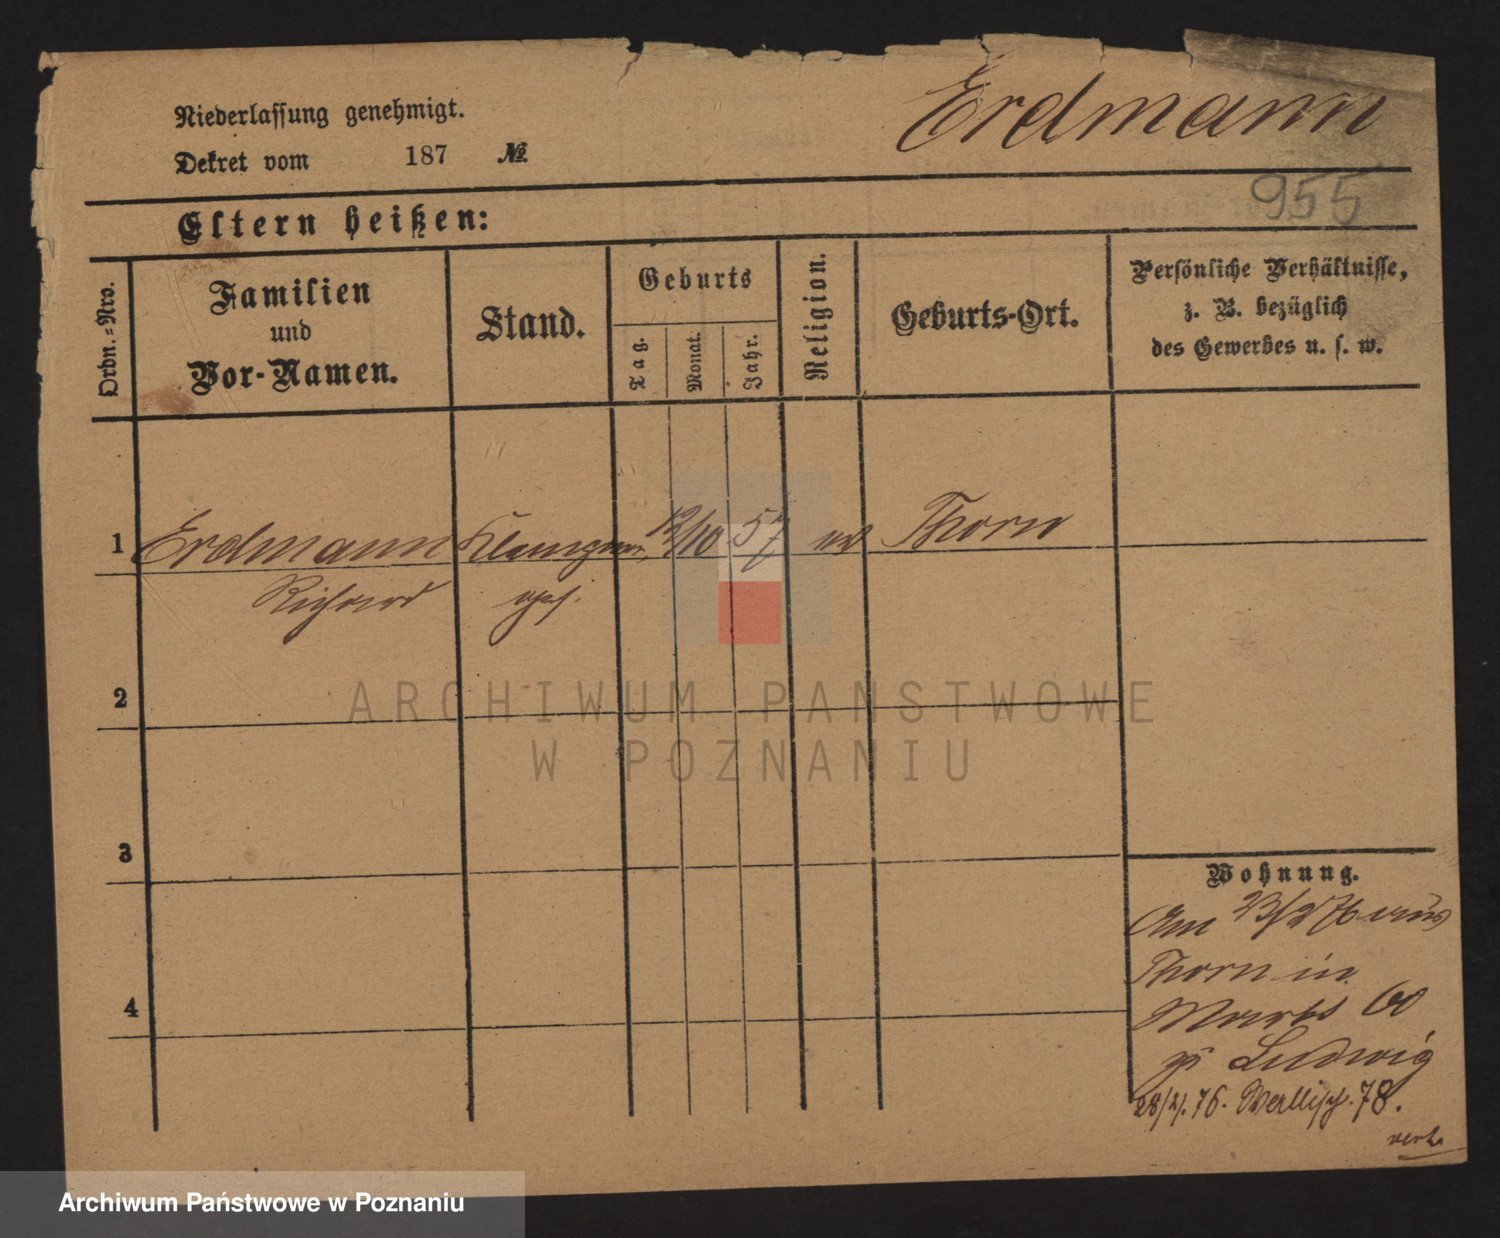 Niederlassung genehmigt.
Erdmann
Dekret vom 187 №
955
Eltern heißen:
Ordn.-Nro.
Familien
und
Vor-Namen.
Stand.
Geburts
Tag.
Monat.
Jahr.
Religion.
Geburts-Ort.
Persönliche Verhältnisse,
z. B. bezüglich
des Gewerbes u. s. w.
1 Erdmann Klempner 12/10 57 ev Thorn
Richard
2
ARCHIWUM PAŃSTWOWE
W POZNANIU
3
Wohnung.
Am 23/2 76 aus
Thorn in
Markt 60
zu Ludwig
4
28/2. 76. Wallisch. 78.
Archiwum Państwowe w Poznaniu